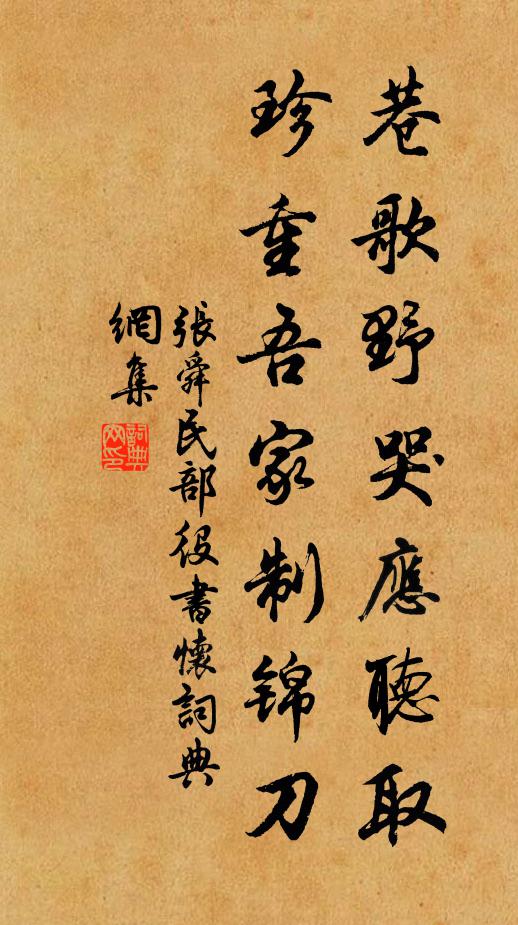 巷歌野哭應聽取
珍重吾家制锦刀
張舜民部役書懷詞典
網集
詞典
网印